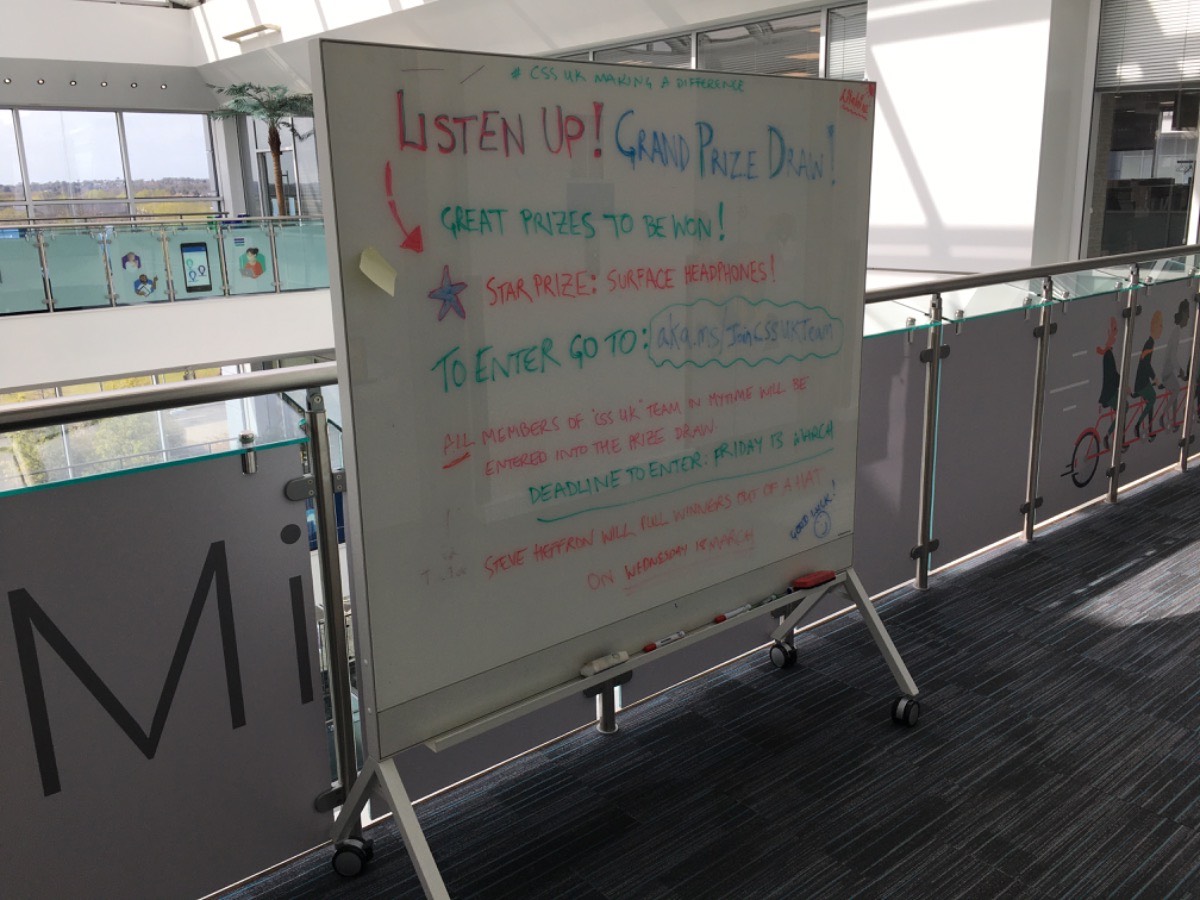 # CSS UK MAKING A DIFFERENCE
LISTEN UP! GRAND PRIZE DRAW!
GREAT PRIZES TO BE WON!
STAR PRIZE: SURFACE HEADPHONES!
TO ENTER GO TO: aka.ms/JoinCSSUKTeam
ALL MEMBERS OF "CSS UK" TEAM IN MYTIME WILL BE
ENTERED INTO THE PRIZE DRAW.
DEADLINE TO ENTER: FRIDAY 13 MARCH
STEVE HEFFRON WILL PULL WINNERS OUT OF A HAT
ON WEDNESDAY 18 MARCH
GOOD LUCK!
Mi